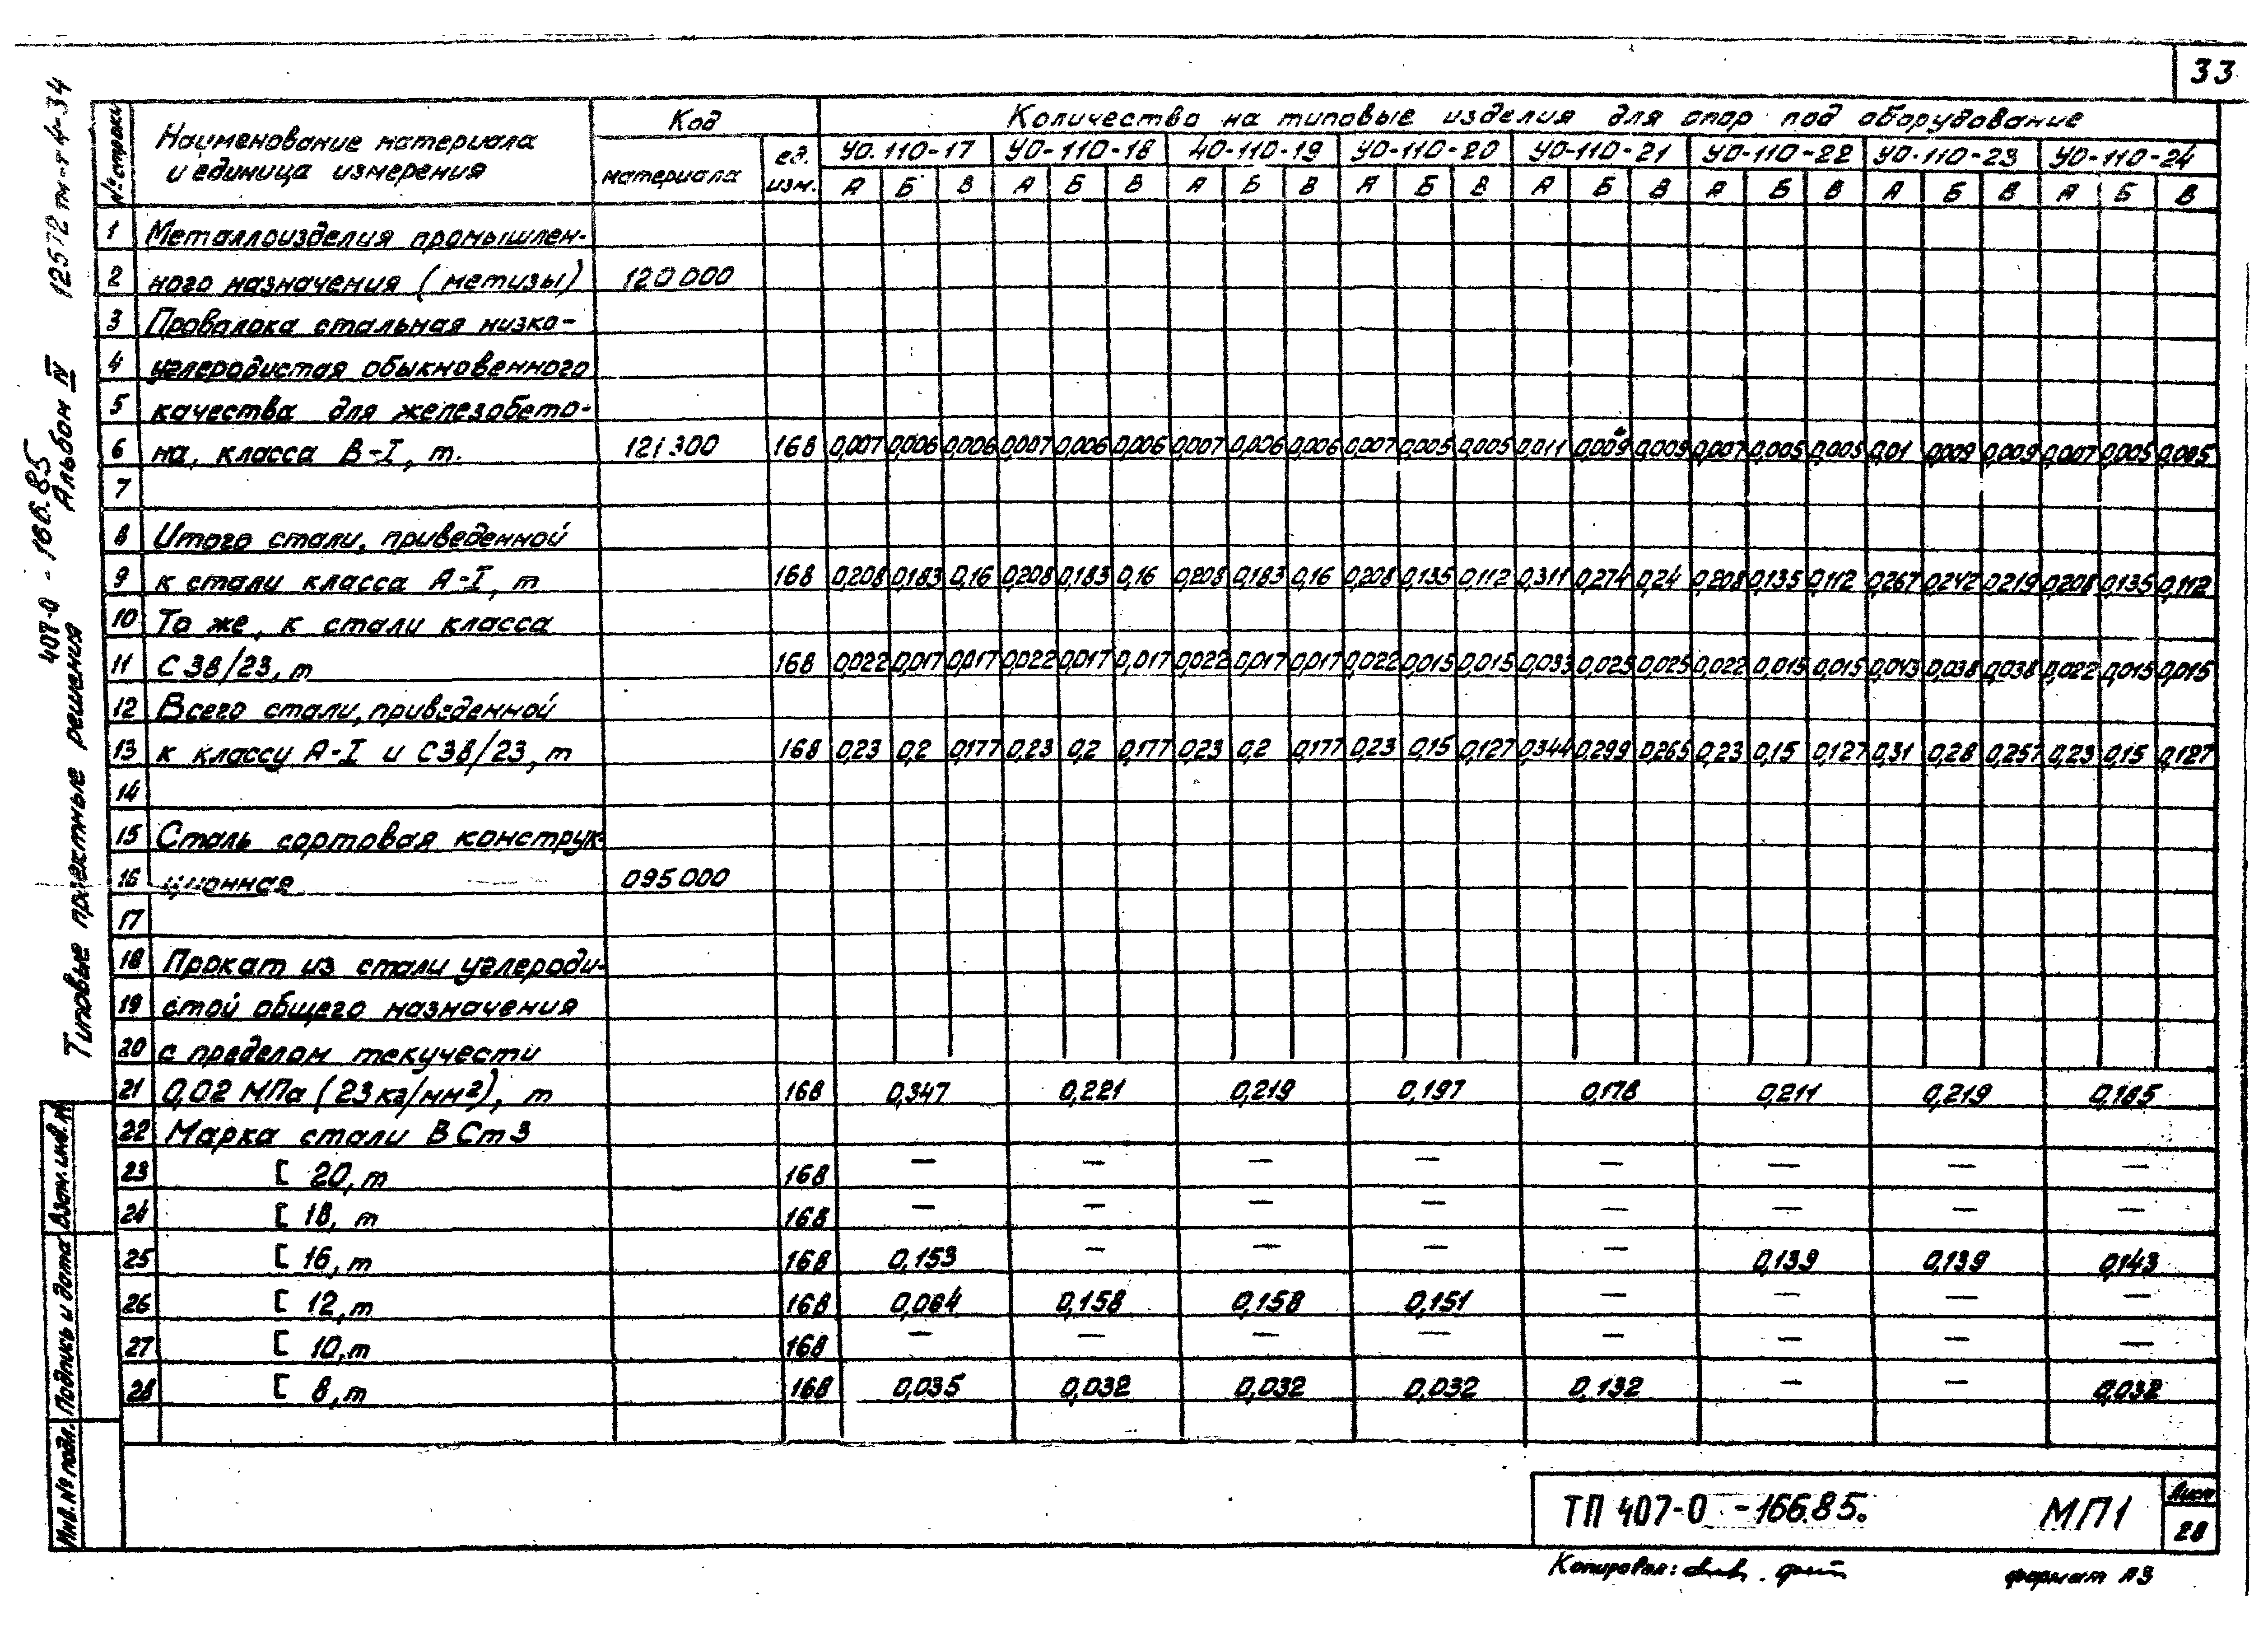 33
12572тм-т4-34
407-0-166.85 Альбом IV
Типовые проектные решения
№ строки Наименование материала и единица измерения Код Количество на типовые изделия для опор под оборудование
материала ед. изм. УО.110-17 УО-110-18 УО-110-19 УО-110-20 УО-110-21 УО-110-22 УО-110-23 УО-110-24
А Б В А Б В А Б В А Б В А Б В А Б В А Б В А Б В
1 Металлоизделия промышлен-
2 ного назначения (метизы) 120000
3 Проволока стальная низко-
4 углеродистая обыкновенного
5 качества для железобето-
6 на, класса В-I, т. 121300 168 0,007 0,006 0,006 0,007 0,006 0,006 0,007 0,006 0,006 0,007 0,005 0,005 0,011 0,009 0,009 0,007 0,005 0,005 0,01 0,009 0,009 0,007 0,005 0,005
7
8 Итого стали, приведенной
9 к стали класса А-I, т 168 0,208 0,183 0,16 0,208 0,183 0,16 0,208 0,183 0,16 0,208 0,135 0,112 0,311 0,274 0,24 0,208 0,135 0,112 0,267 0,242 0,219 0,208 0,135 0,112
10 То же, к стали класса
11 С38/23, т 168 0,022 0,017 0,017 0,022 0,017 0,017 0,022 0,017 0,017 0,022 0,015 0,015 0,033 0,025 0,025 0,022 0,015 0,015 0,043 0,038 0,038 0,022 0,015 0,015
12 Всего стали, приведенной
13 к классу А-I и С38/23, т 168 0,23 0,2 0,177 0,23 0,2 0,177 0,23 0,2 0,177 0,23 0,15 0,127 0,344 0,299 0,265 0,23 0,15 0,127 0,31 0,28 0,257 0,23 0,15 0,127
14
15 Сталь сортовая конструк-
16 ционная 095000
17
18 Прокат из стали углероди-
19 стой общего назначения
20 с пределом текучести
21 0,02 МПа (23кг/мм²), т 168 0,347 0,221 0,219 0,197 0,178 0,211 0,219 0,185
22 Марка стали ВСт3
23 [ 20, т 168 — — — — — — — —
24 [ 18, т 168 — — — — — — — —
25 [ 16, т 168 0,153 — — — — 0,139 0,139 0,143
26 [ 12, т 168 0,064 0,158 0,158 0,151 — — — —
27 [ 10, т 168 — — — — — — — —
28 [ 8, т 168 0,035 0,032 0,032 0,032 0,132 — — 0,032
Взам. инв. №
Подпись и дата
Инв. № подл.
ТП 407-0-166.85. МП1 Лист
28
Копировал: формат А3